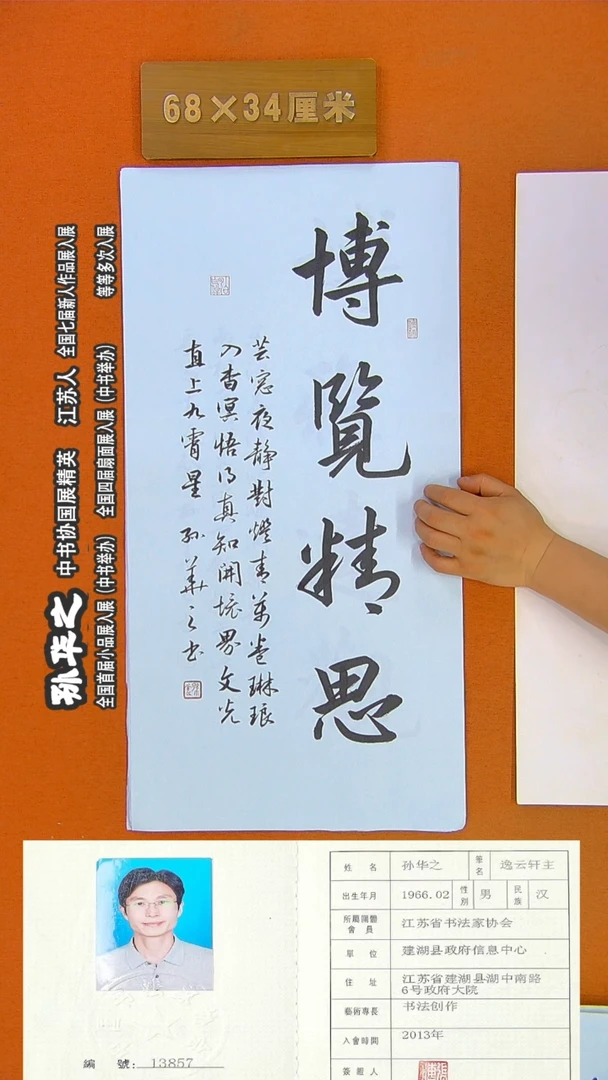 68×34厘米
博覽精思
芸窓夜静對燈青萬卷琳琅
入杳冥悟得真知開境界文光
直上九霄星 孙華之书
孙华之 中书协国展精英 江苏人 全国七届新人作品展入展
全国首届小品展入展（中书举办） 全国四届扇面展入展（中书举办） 等等多次入展
編 號：13857
姓名 孙华之 筆名 逸云轩主
出生年月 1966.02 性別 男 民族 汉
所屬團體會員 江苏省书法家协会
單位 建湖县政府信息中心
住址 江苏省建湖县湖中南路
6号政府大院
藝術專長 书法创作
入會時間 2013年
簽發人